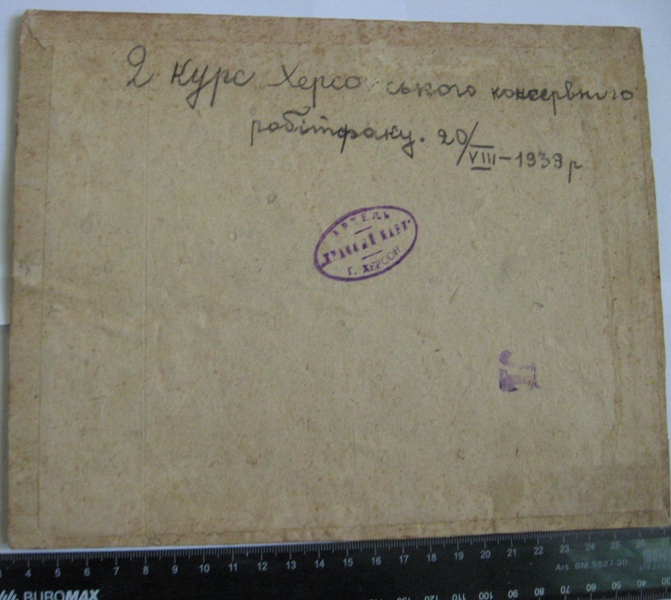 2 курс Херсо ського консервного
робітфаку. 20/VIII-1939р
АРТЕЛЬ
Г. ХЕРСОН
4 5 6 7 8 9 10 11 12 13 14 15 16 17 18 19 20 21 22 23 24 25
Art. BM.5827-30
BUROMAX